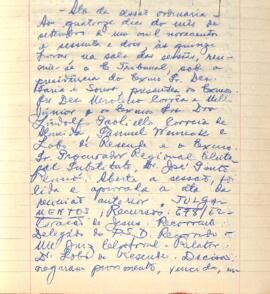 - Ata da sessão ordinária -
Aos quatorze dias do mês de
setembro de um mil novecentos
e sessenta e dois às quinze
horas na sala das sessões, reu-
niu-se o Tribunal sob a
presidência do Exmo. Sr. Des.
Faria e Sousa, presentes os Exmos.
Srs. Des. Merolino Corrêa e Mello
Júnior, e os Exmos. Srs. Drs.
Lindolfo Paoliello, Correia de
Almeida,
Lobo de Resende e o Exmo.
Sr. Procurador Regional Eleito-
ral Substituto Dr. José
Aberta a sessão, foi
lida e aprovada a ata da
reunião anterior. JULGA-
MENTOS: Recursos: 675/62 -
Coração de Jesus. Recorrente
Delegado do P.S.D. Recorrido o
MM. Juiz Eleitoral. Relator
Dr. Lobo de Resende. Decisão:
negaram provimento, vencido, em